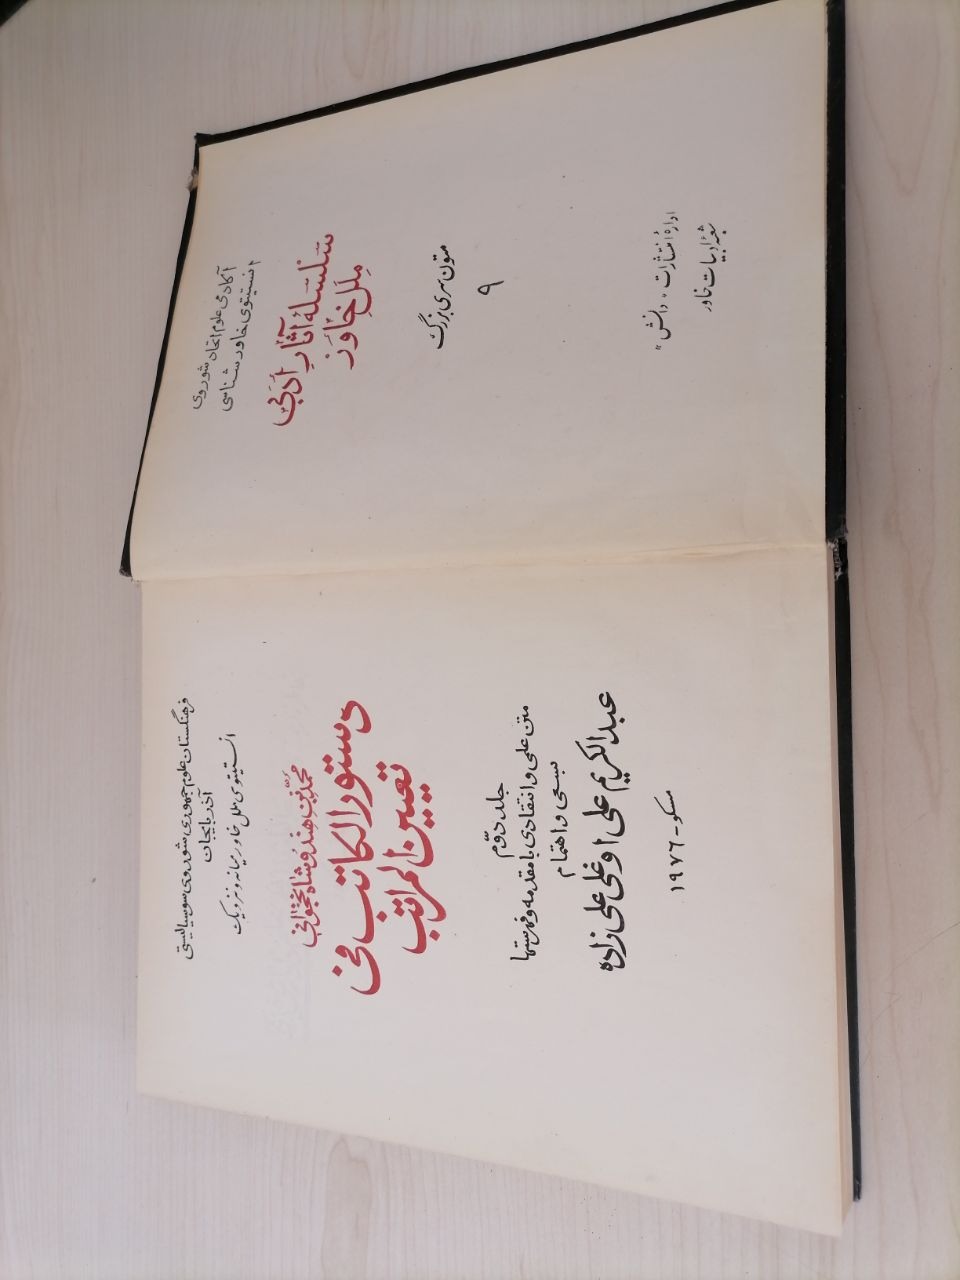 آکادمی علوم اتحاد شوروی
انستیتوی خاور شناسی
سلسلهٔ آثار ادبی
ملل خاور
متون سری بزرگ
۹
ادارهٔ انتشارات «دانش»
شعبهٔ ادبیات خاور
فرهنگستان علوم جمهوری شوروی سوسیالیستی
آذربایجان
انستیتوی ملل خاور میانه و نزدیک
محمد بن هندوشاه نخجوانی
دستور الکاتب فی
تعیین المراتب
جلد دوّم
متن علمی و انتقادی با مقدمه و فهرستها
بسعی و اهتمام
عبدالکریم علی اوغلی علی زاده
مسکو - ۱۹۷۶